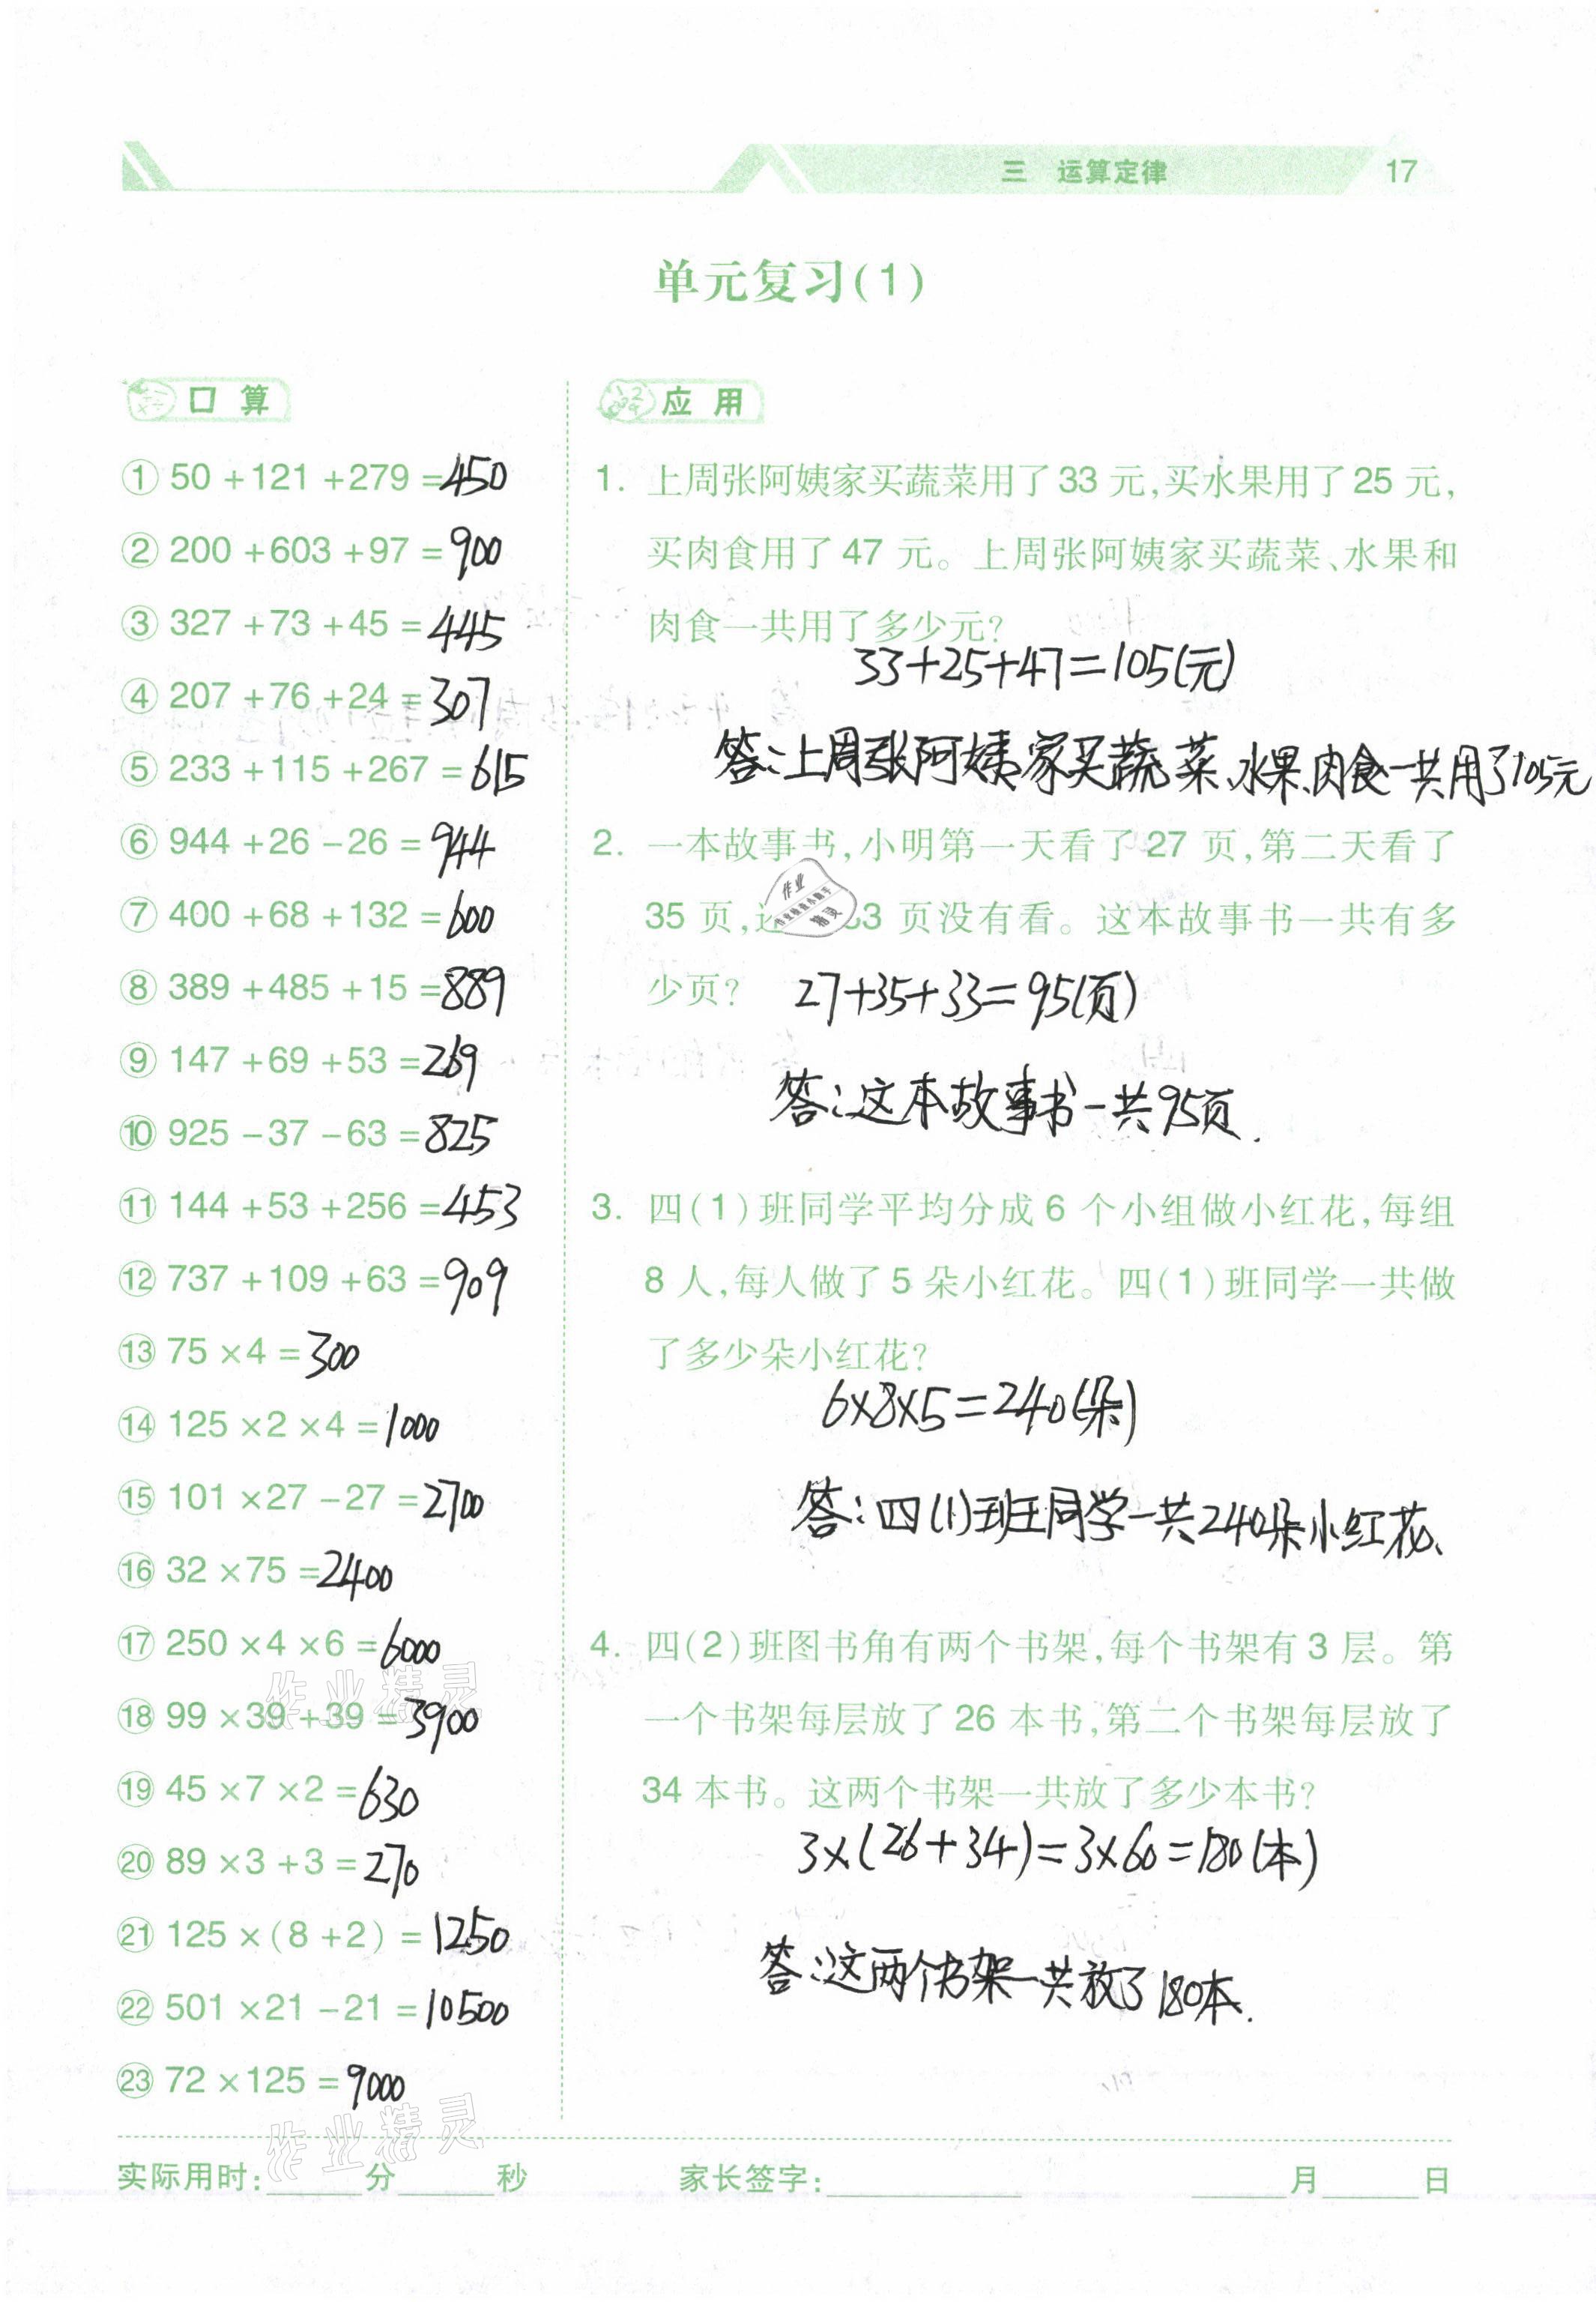 三 运算定律 17
单元复习(1)
口 算
① 50 + 121 + 279 = 450
② 200 + 603 + 97 = 900
③ 327 + 73 + 45 = 445
④ 207 + 76 + 24 = 307
⑤ 233 + 115 + 267 = 615
⑥ 944 + 26 - 26 = 944
⑦ 400 + 68 + 132 = 600
⑧ 389 + 485 + 15 = 889
⑨ 147 + 69 + 53 = 269
⑩ 925 - 37 - 63 = 825
⑪ 144 + 53 + 256 = 453
⑫ 737 + 109 + 63 = 909
⑬ 75 × 4 = 300
⑭ 125 × 2 × 4 = 1000
⑮ 101 × 27 - 27 = 2700
⑯ 32 × 75 = 2400
⑰ 250 × 4 × 6 = 6000
⑱ 99 × 39 + 39 = 3900
⑲ 45 × 7 × 2 = 630
⑳ 89 × 3 + 3 = 270
㉑ 125 × (8 + 2) = 1250
㉒ 501 × 21 - 21 = 10500
㉓ 72 × 125 = 9000
应 用
1. 上周张阿姨家买蔬菜用了 33 元,买水果用了 25 元,
买肉食用了 47 元。上周张阿姨家买蔬菜、水果和
肉食一共用了多少元?
33+25+47=105(元)
答:上周张阿姨家买蔬菜、水果、肉食一共用了105元
2. 一本故事书,小明第一天看了 27 页,第二天看了
35 页,3 页没有看。这本故事书一共有多
少页?
27+35+33=95(页)
答:这本故事书一共95页.
3. 四(1)班同学平均分成 6 个小组做小红花,每组
8 人,每人做了 5 朵小红花。四(1)班同学一共做
了多少朵小红花?
6×8×5=240(朵)
答:四(1)班同学一共240朵小红花、
4. 四(2)班图书角有两个书架,每个书架有 3 层。第
一个书架每层放了 26 本书,第二个书架每层放了
34 本书。这两个书架一共放了多少本书?
3×(26+34)=3×60=180(本)
答:这两个书架一共放了180本.
作业精灵
作业精灵
作业
精灵
实际用时:______分______秒 家长签字:____________ ______月______日